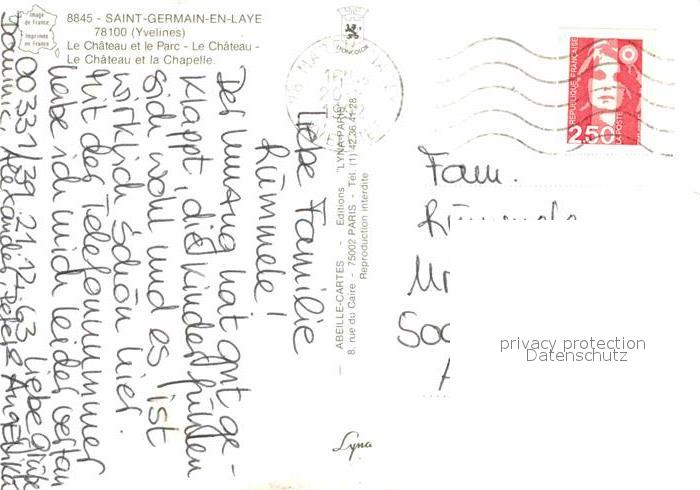 Image
de France
Imprimé
en France
8845 - SAINT-GERMAIN-EN-LAYE
78100 (Yvelines)
Le Château et le Parc - Le Château -
Le Château et la Chapelle.
Liebe Familie
Rümmele!
Der Umzug hat gut ge-
klappt, die Kinder fühlen
sich wohl und es ist
wirklich schön hier.
Mit der Telefonnummer
habe ich mich leider vertan
00 331/39 21 12 63 Liebe Grüße
Dominic, Alexander, Peter & Angelika
ABEILLE-CARTES - Editions "LYNA-PARIS"
8, rue du Caire - 75002 PARIS - Tél. (1) 42.36.41.28
Reproduction interdite
Lyna
REPUBLIQUE FRANÇAISE
LA POSTE
2,50
Fam.
privacy protection
Datenschutz